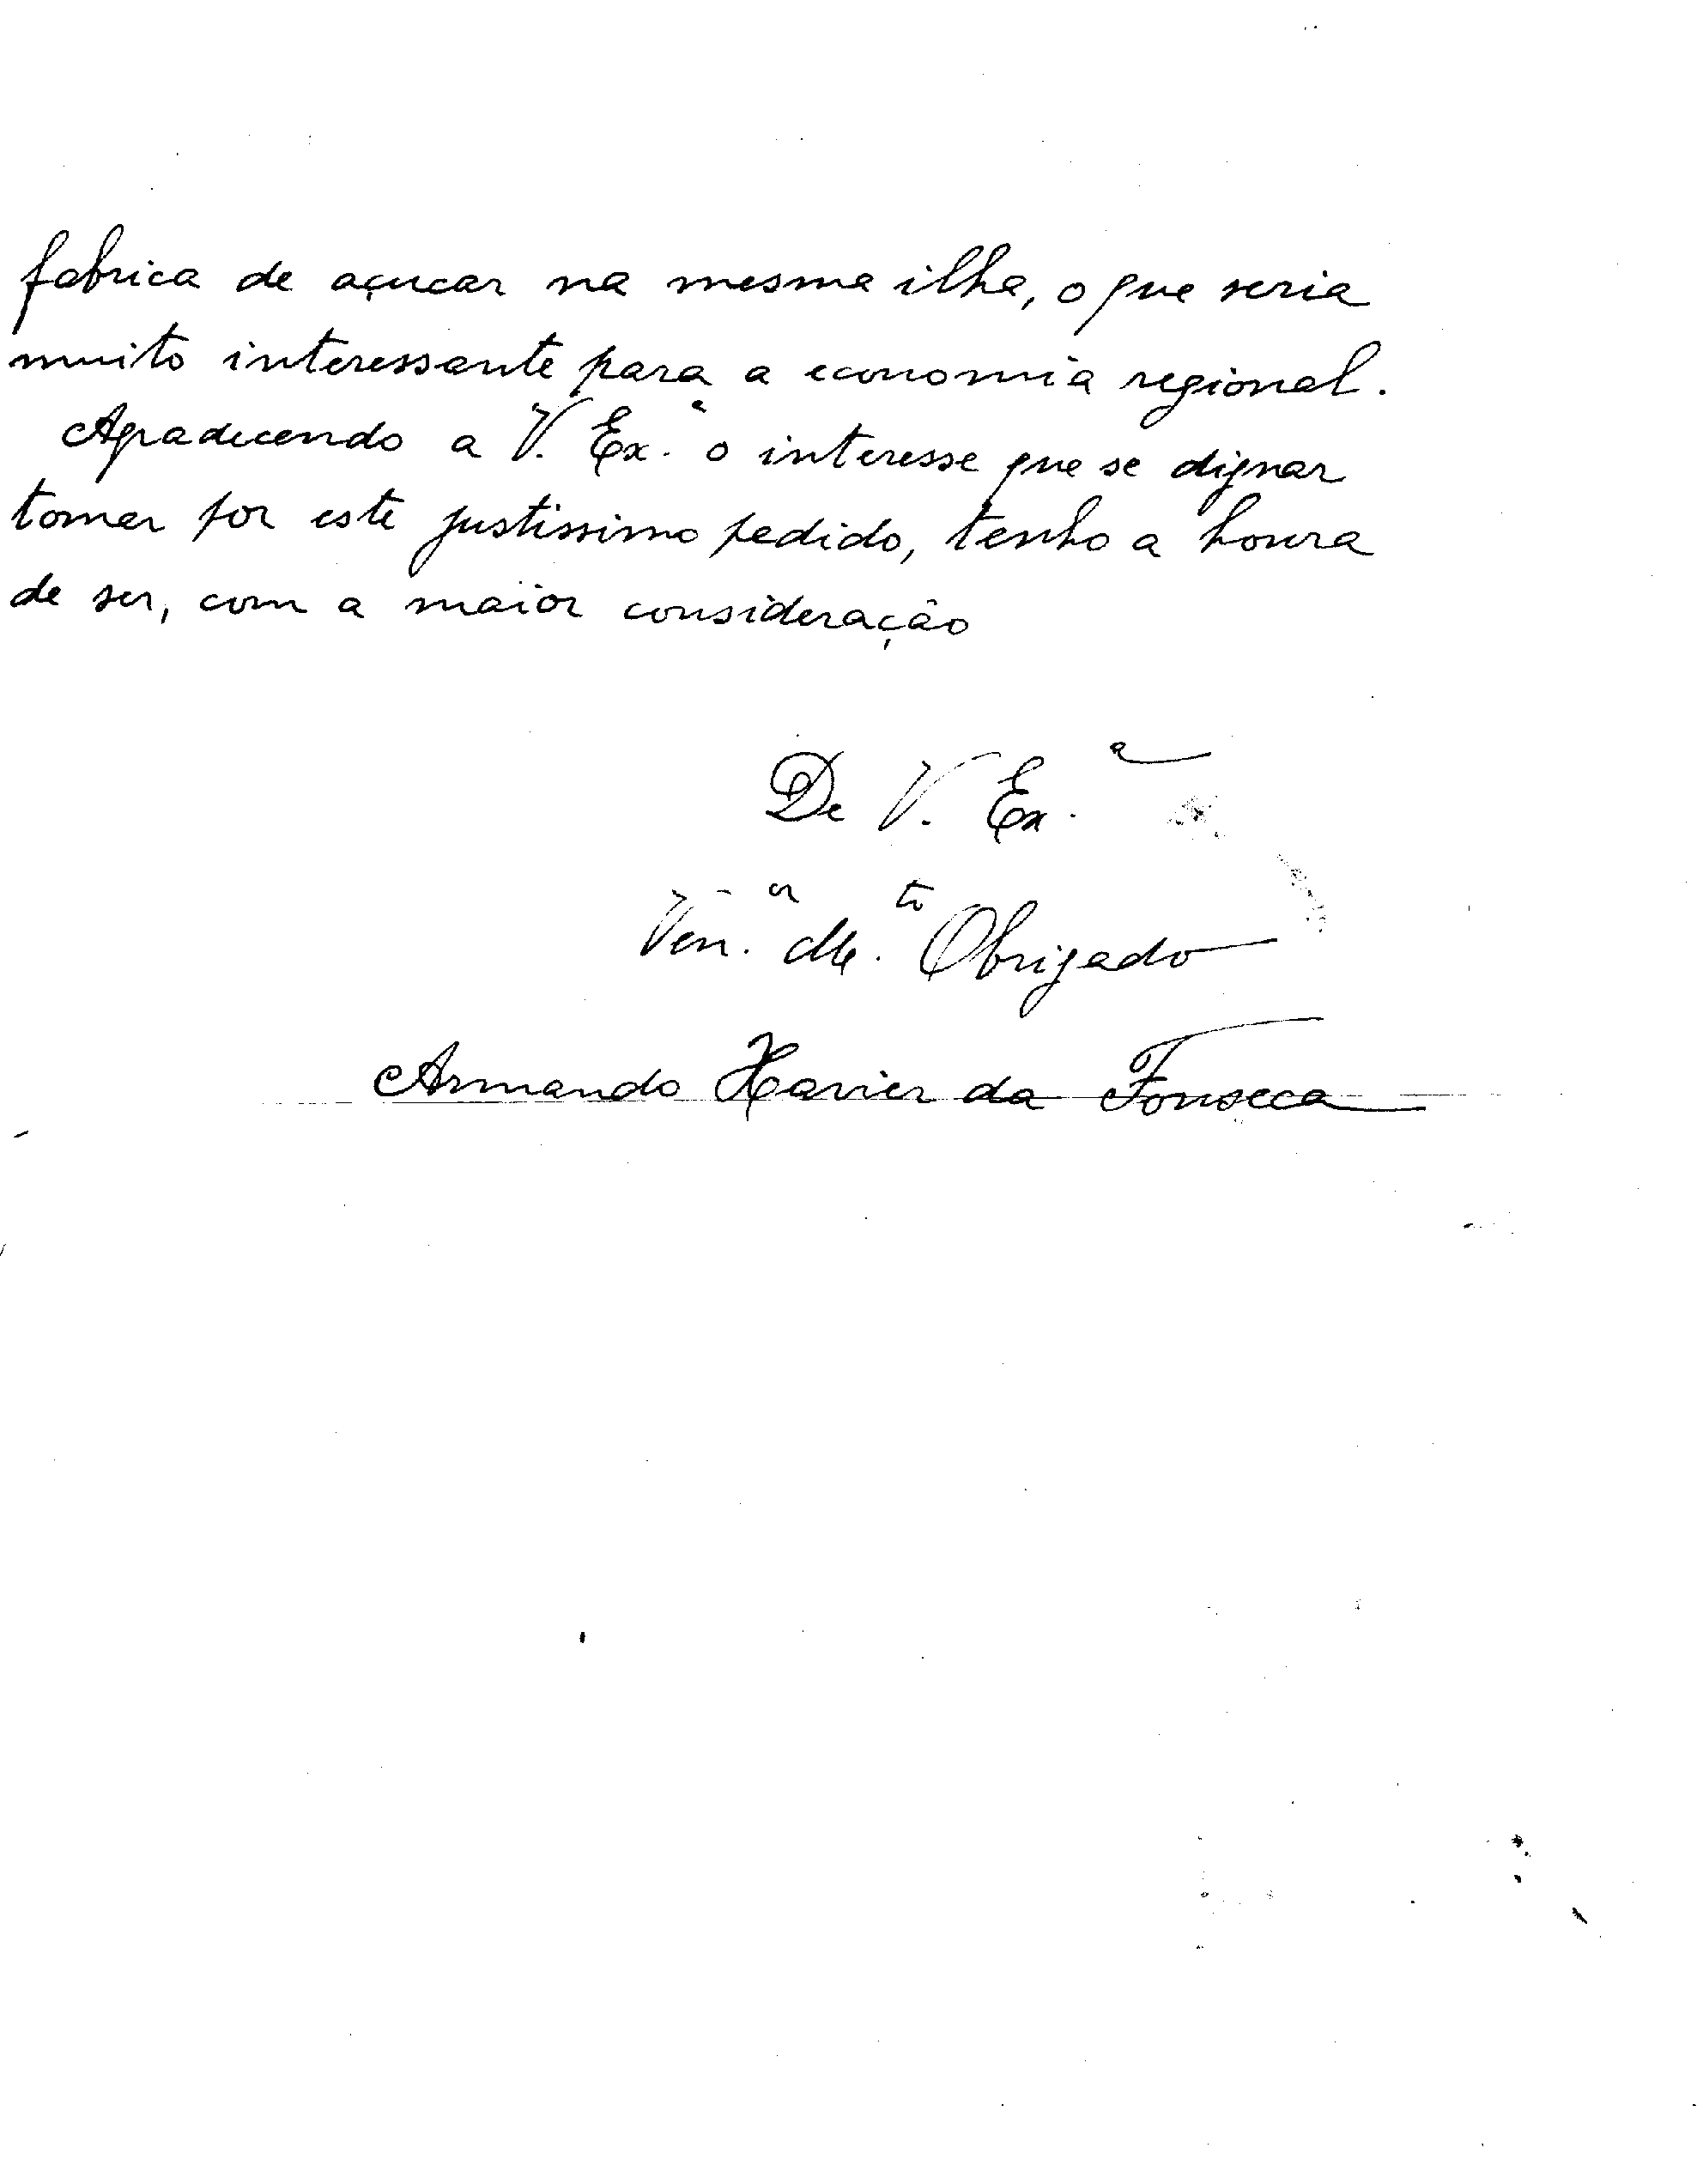 fabrica de açucar na mesma ilha, o que seria
muito interessante para a economia regional.
Agradecendo a V. Ex.ª o interesse que se dignar
tomar por este justissimo pedido, tenho a honra
de ser, com a maior consideração
De V. Ex.ª
Ven.or M.to Obrigado
Armando Xavier da Fonseca